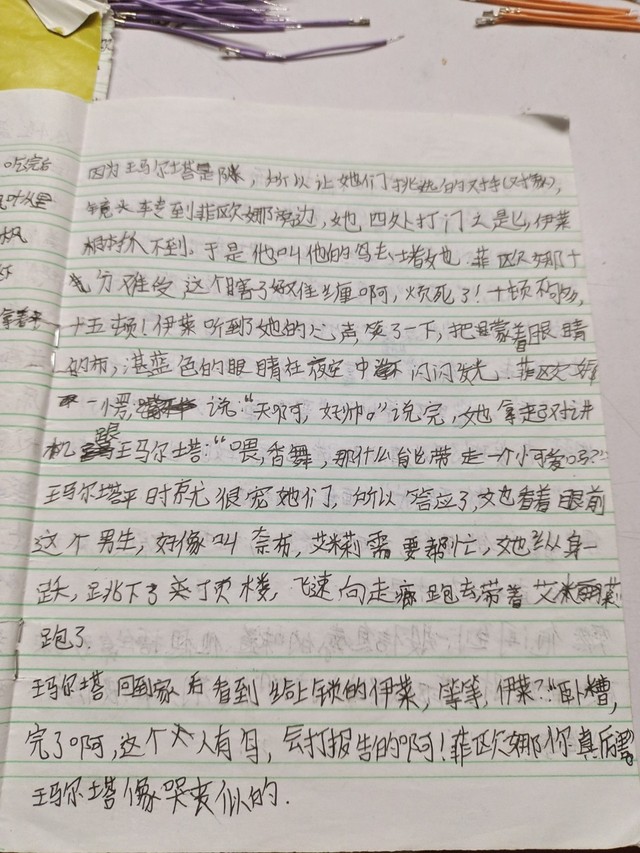 吃完后
因为玛尔塔是队长,所以让她们挑她的对手(对象),
镜头转到菲欧娜这边,她四处打门之是匕,伊莱
根本不到.于是他叫他的鸟去堵她.菲欧娜十
分难受,这个瞎子奴住半厘啊,烦死了!十顿不够,
十五顿!伊莱听到了她的心声,笑了一下,把蒙着眼睛
的布,湛蓝色的眼睛在夜空中闪闪发光.菲欧娜
一愣,说:“天啊,好帅。”说完,她拿起了对讲
机跟玛尔塔:“喂,香舞,那什么能带走一个小可爱吗?”
玛尔塔平时就很宠她们,所以答应了,她看着眼前
这个男生,好像叫奈布,艾米莉需要帮忙,她纵身一
跃,跳下了英丁页楼,飞速向走跑去带着艾米莉
跑了.
玛尔塔回到家后看到给上锁的伊莱,等等,伊莱?“卧槽,
完了啊,这个人有鸟,会打报告的啊!菲欧娜你真厉害,
玛尔塔像哭丧似的.